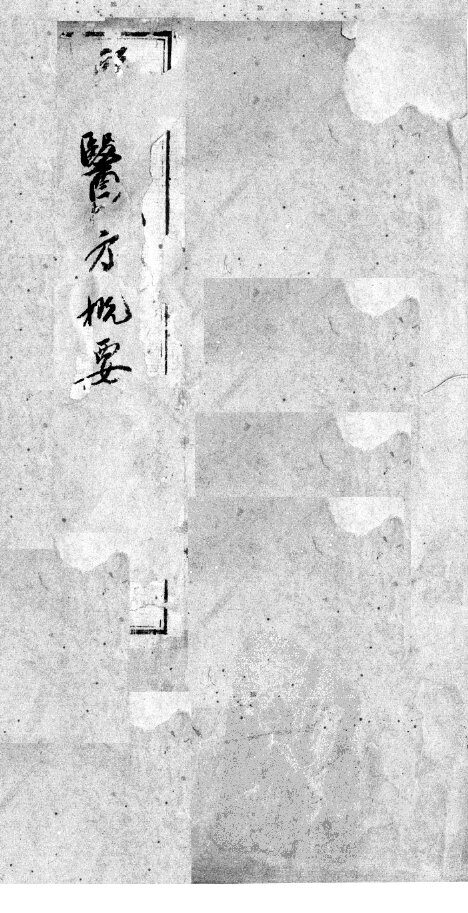 醫方概要